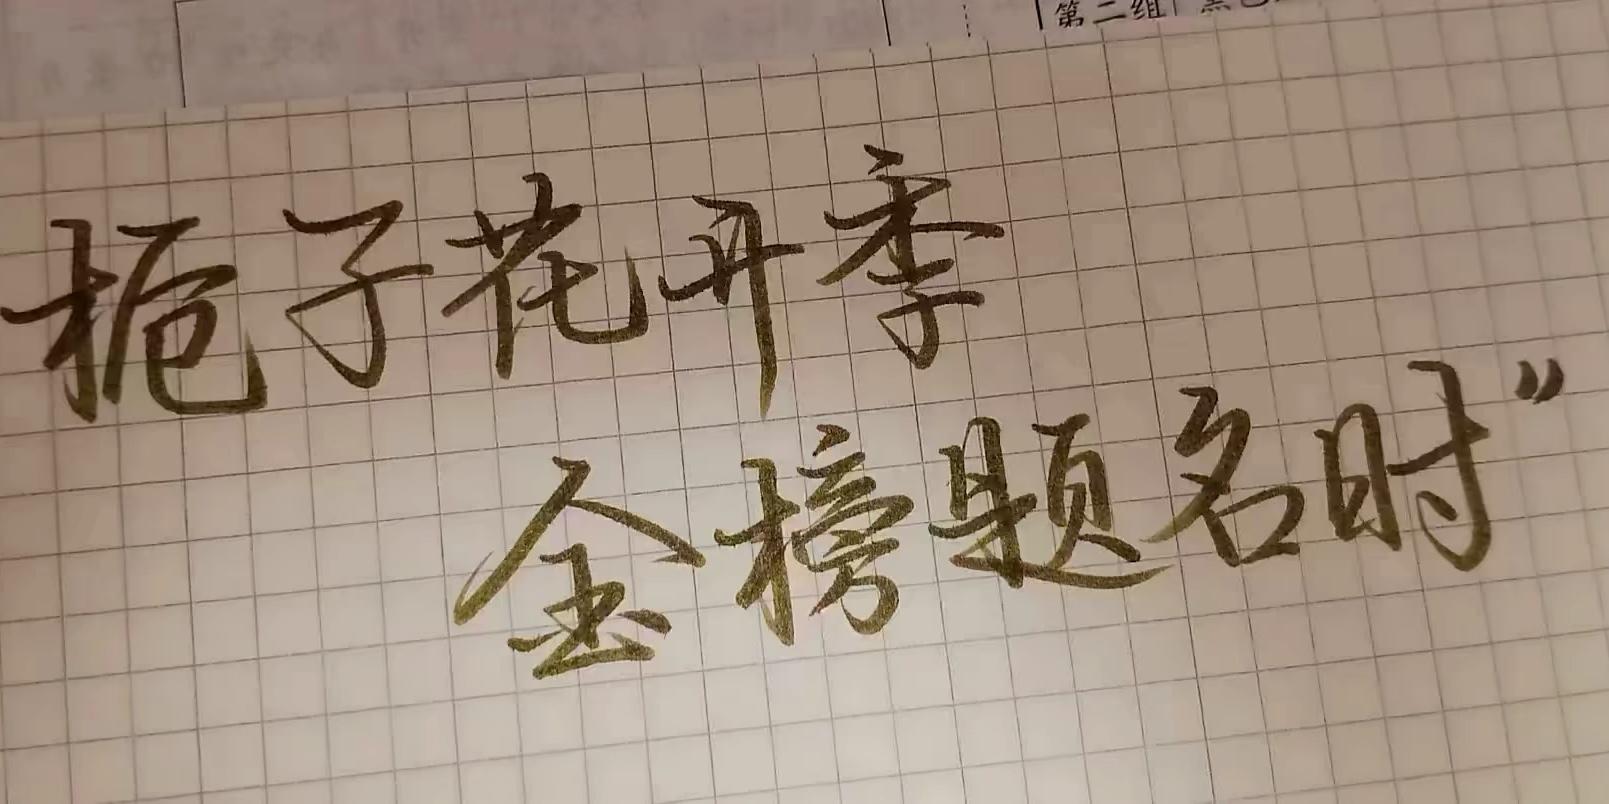 第二组
栀子花开季
金榜题名时”